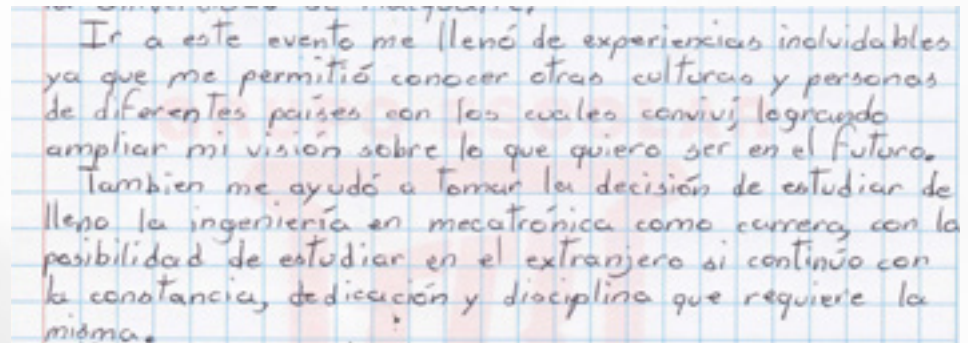 Ir a este evento me llenó de experiencias inolvidables
ya que me permitió conocer otras culturas y personas
de diferentes países con los cuales conviví, logrando
ampliar mi visión sobre lo que quiero ser en el futuro.
Tambien me ayudó a tomar la decisión de estudiar de
lleno la ingeniería en mecatrónica como carrera, con la
posibilidad de estudiar en el extranjero si continúo con
la constancia, dedicación y disciplina que requiere la
misma.